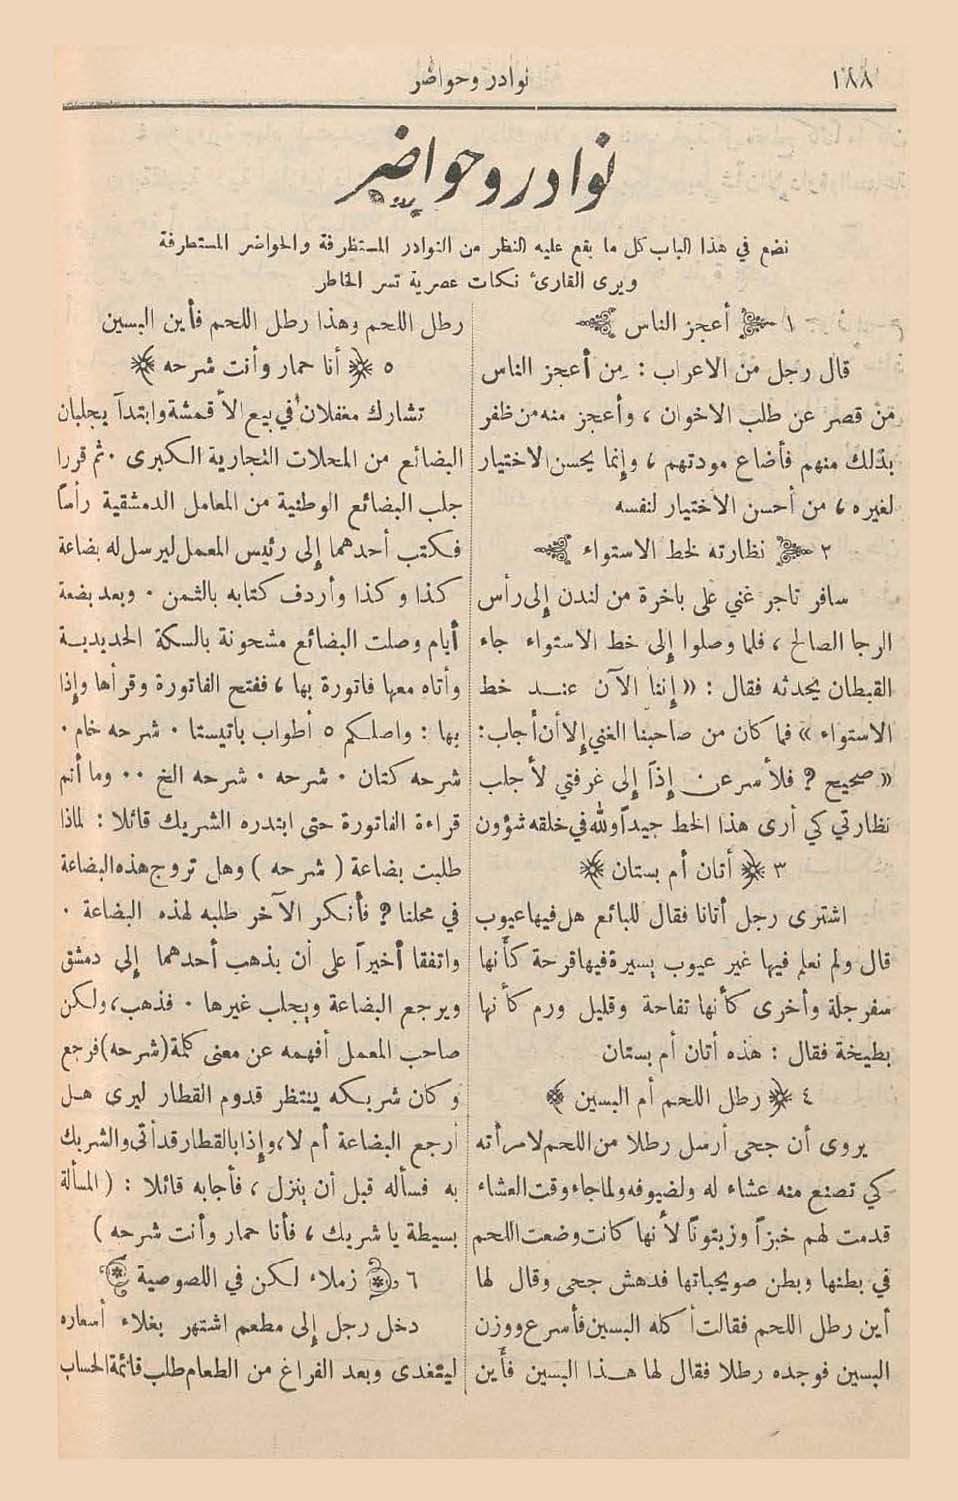 ١٨٨
نوادر وحواضر
نوادر وحواضر
نضع في هذا الباب كل ما يقع عليه النظر من النوادر المستظرفة والحواضر المستطرفة
ويرى القارئ نكات عصرية تسر الخاطر
١ أعجز الناس
قال رجل من الاعراب : من أعجز الناس
من قصر عن طلب الاخوان ، وأعجز منه من ظفر
بذلك منهم فأضاع مودتهم ، وإنما يحسن الاختيار
لغيره ، من أحسن الاختيار لنفسه
٢ نظارته لخط الاستواء
سافر تاجر غني على باخرة من لندن إلى رأس
الرجا الصالح ، فلما وصلوا إلى خط الاستواء جاء
القبطان يحدثه فقال : « إننا الآن عند خط
الاستواء » فما كان من صاحبنا الغني إلا أن أجاب :
« صحيح ? فلأسرعن إذاً إلى غرفتي لأجلب
نظارتي كي أرى هذا الخط جيداً ولله في خلقه شؤون
٣ أتان أم بستان
اشترى رجل أتانا فقال للبائع هل فيها عيوب
قال ولم نعلم فيها غير عيوب يسيرة فيها قرحة كأنها
سفرجلة وأخرى كأنها تفاحة وقليل ورم كأنها
بطيخة فقال : هذه أتان أم بستان
٤ رطل اللحم أم البسين
يروى أن جحى أرسل رطلا من اللحم لامرأته
كي تصنع منه عشاء له ولضيوفه ولما جاء وقت العشاء
قدمت لهم خبزاً وزيتوناً لأنها كانت وضعت اللحم
في بطنها وبطن صويحباتها فدهش جحى وقال لها
أين رطل اللحم فقالت أكله البسين فأسرع ووزن
البسين فوجده رطلا فقال لها هذا البسين فأين
رطل اللحم وهذا رطل اللحم فأين البسين
٥ أنا حمار وأنت شرحه
تشارك مغفلان في بيع الأقمشة وابتدآ يجلبان
البضائع من المحلات التجارية الكبرى . ثم قررا
جلب البضائع الوطنية من المعامل الدمشقية رأساً
فكتب أحدهما إلى رئيس المعمل ليرسل له بضاعة
كذا وكذا وأردف كتابه بالثمن . وبعد بضعة
أيام وصلت البضائع مشحونة بالسكة الحديدية
وأتاه معها فاتورة بها ، ففتح الفاتورة وقرأها وإذا
بها : واصلكم ٥ أطواب باتيستا . شرحه خام .
شرحه كتان . شرحه . شرحه الخ .. وما أتم
قراءة الفاتورة حتى ابتدره الشريك قائلا : لماذا
طلبت بضاعة ( شرحه ) وهل تروج هذه البضاعة
في محلنا ? فأنكر الآخر طلبه لهذه البضاعة .
واتفقا أخيراً على أن يذهب أحدهما إلى دمشق
ويرجع البضاعة ويجلب غيرها . فذهب ، ولكن
صاحب المعمل أفهمه عن معنى كلمة (شرحه) فرجع
وكان شريكه ينتظر قدوم القطار ليرى هل
أرجع البضاعة أم لا ، وإذا بالقطار قد أتى والشريك
به فسأله قبل أن ينزل ، فأجابه قائلا : ( المسألة
بسيطة يا شريك ، فأنا حمار وأنت شرحه )
٦ زملاء لكن في اللصوصية
دخل رجل إلى مطعم اشتهر بغلاء أسعاره
ليتغدى وبعد الفراغ من الطعام طلب قائمة الحساب